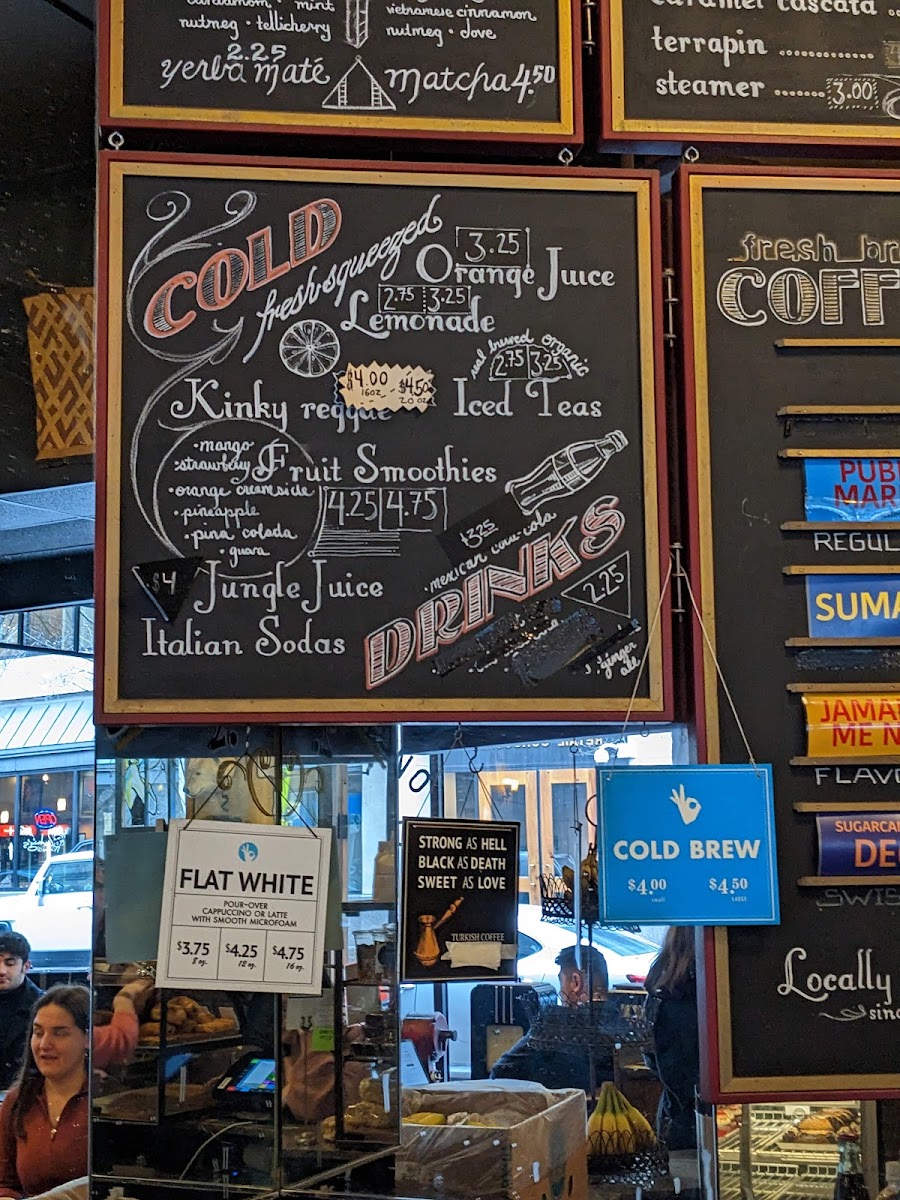 mint
nutmeg · tellicherry
2.25
yerba maté
vietnamese cinnamon
nutmeg · clove
matcha 4.50
caramel cascata ..
terrapin ............
steamer ....... 3.00
COLD
fresh-squeezed
3.25
Orange Juice
2.75 3.25
Lemonade
real brewed organic
2.75 3.25
Iced Teas
$4.00 16oz - $4.50 20 oz
Kinky reggae
· mango
· strawberry
· orange creamside
· pineapple
· pina colada
· guava
Fruit Smoothies
4.25 4.75
$3.25
· mexican coca-cola
DRINKS
2.25
ginger ale
$4
Jungle Juice
Italian Sodas
fresh br
COFF
PUB
MAR
REGUL
SUMA
JAMA
ME N
FLAV
SUGARCA
DE
SWIS
Locally
sin
FLAT WHITE
POUR-OVER
CAPPUCCINO OR LATTE
WITH SMOOTH MICROFOAM
$3.75 $4.25 $4.75
8 oz. 12 oz. 16 oz.
STRONG AS HELL
BLACK AS DEATH
SWEET AS LOVE
TURKISH COFFEE
COLD BREW
$4.00 $4.50
small large
OPEN